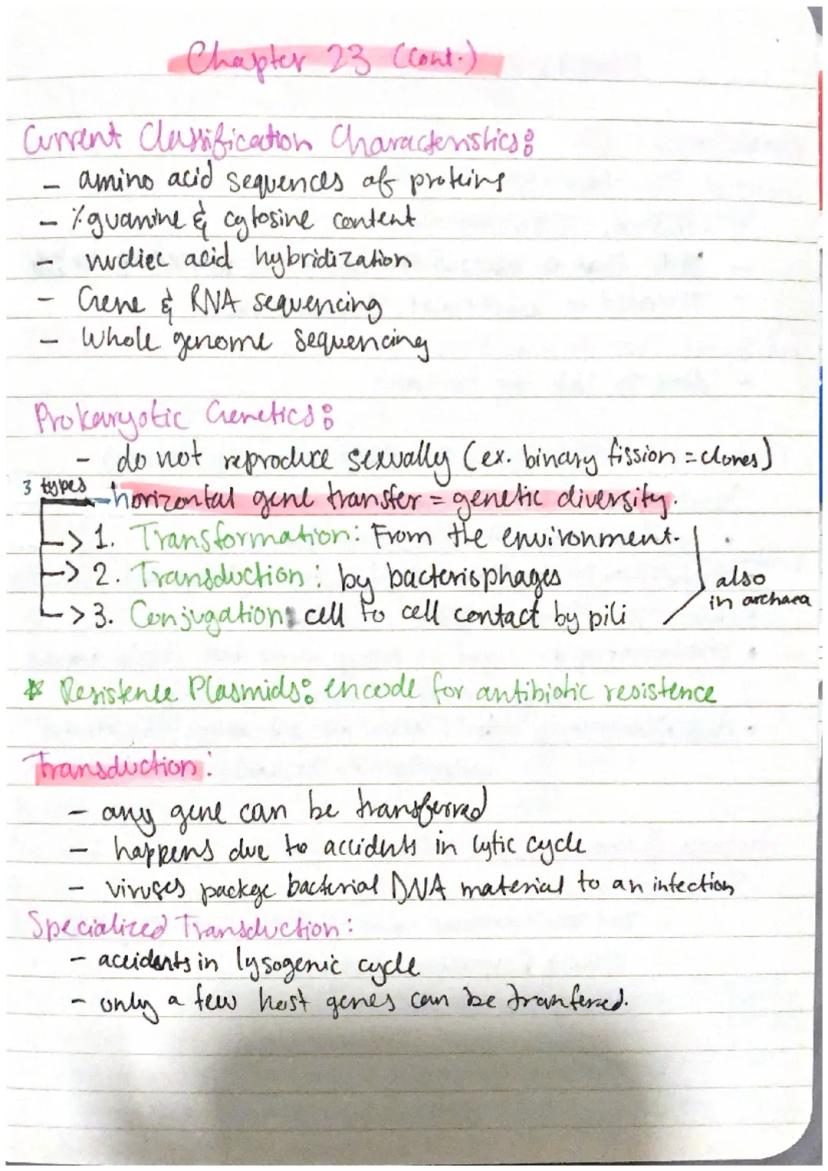 Chapter 23 (Cont.)
Current Classification Characteristics:
- amino acid sequences of proteins
- % guanine & cytosine content
- nucliec acid hybridization
- Gene & RNA sequencing
- Whole genome sequencing
Prokaryotic Genetics:
- do not reproduce sexually (ex. binary fission = clones)
3 types - horizontal gene transfer = genetic diversity.
-> 1. Transformation: From the environment.
-> 2. Transduction: by bacterisphages
-> 3. Conjugation: cell to cell contact by pili
also
in archaea
* Resistence Plasmids: encode for antibiotic resistence
Transduction:
- any gene can be transferred
- happens due to accidents in lytic cycle
- viruses packge bacterial DNA material to an infection
Specialized Transduction:
- accidents in lysogenic cycle
- only a few host genes can be tranferred.